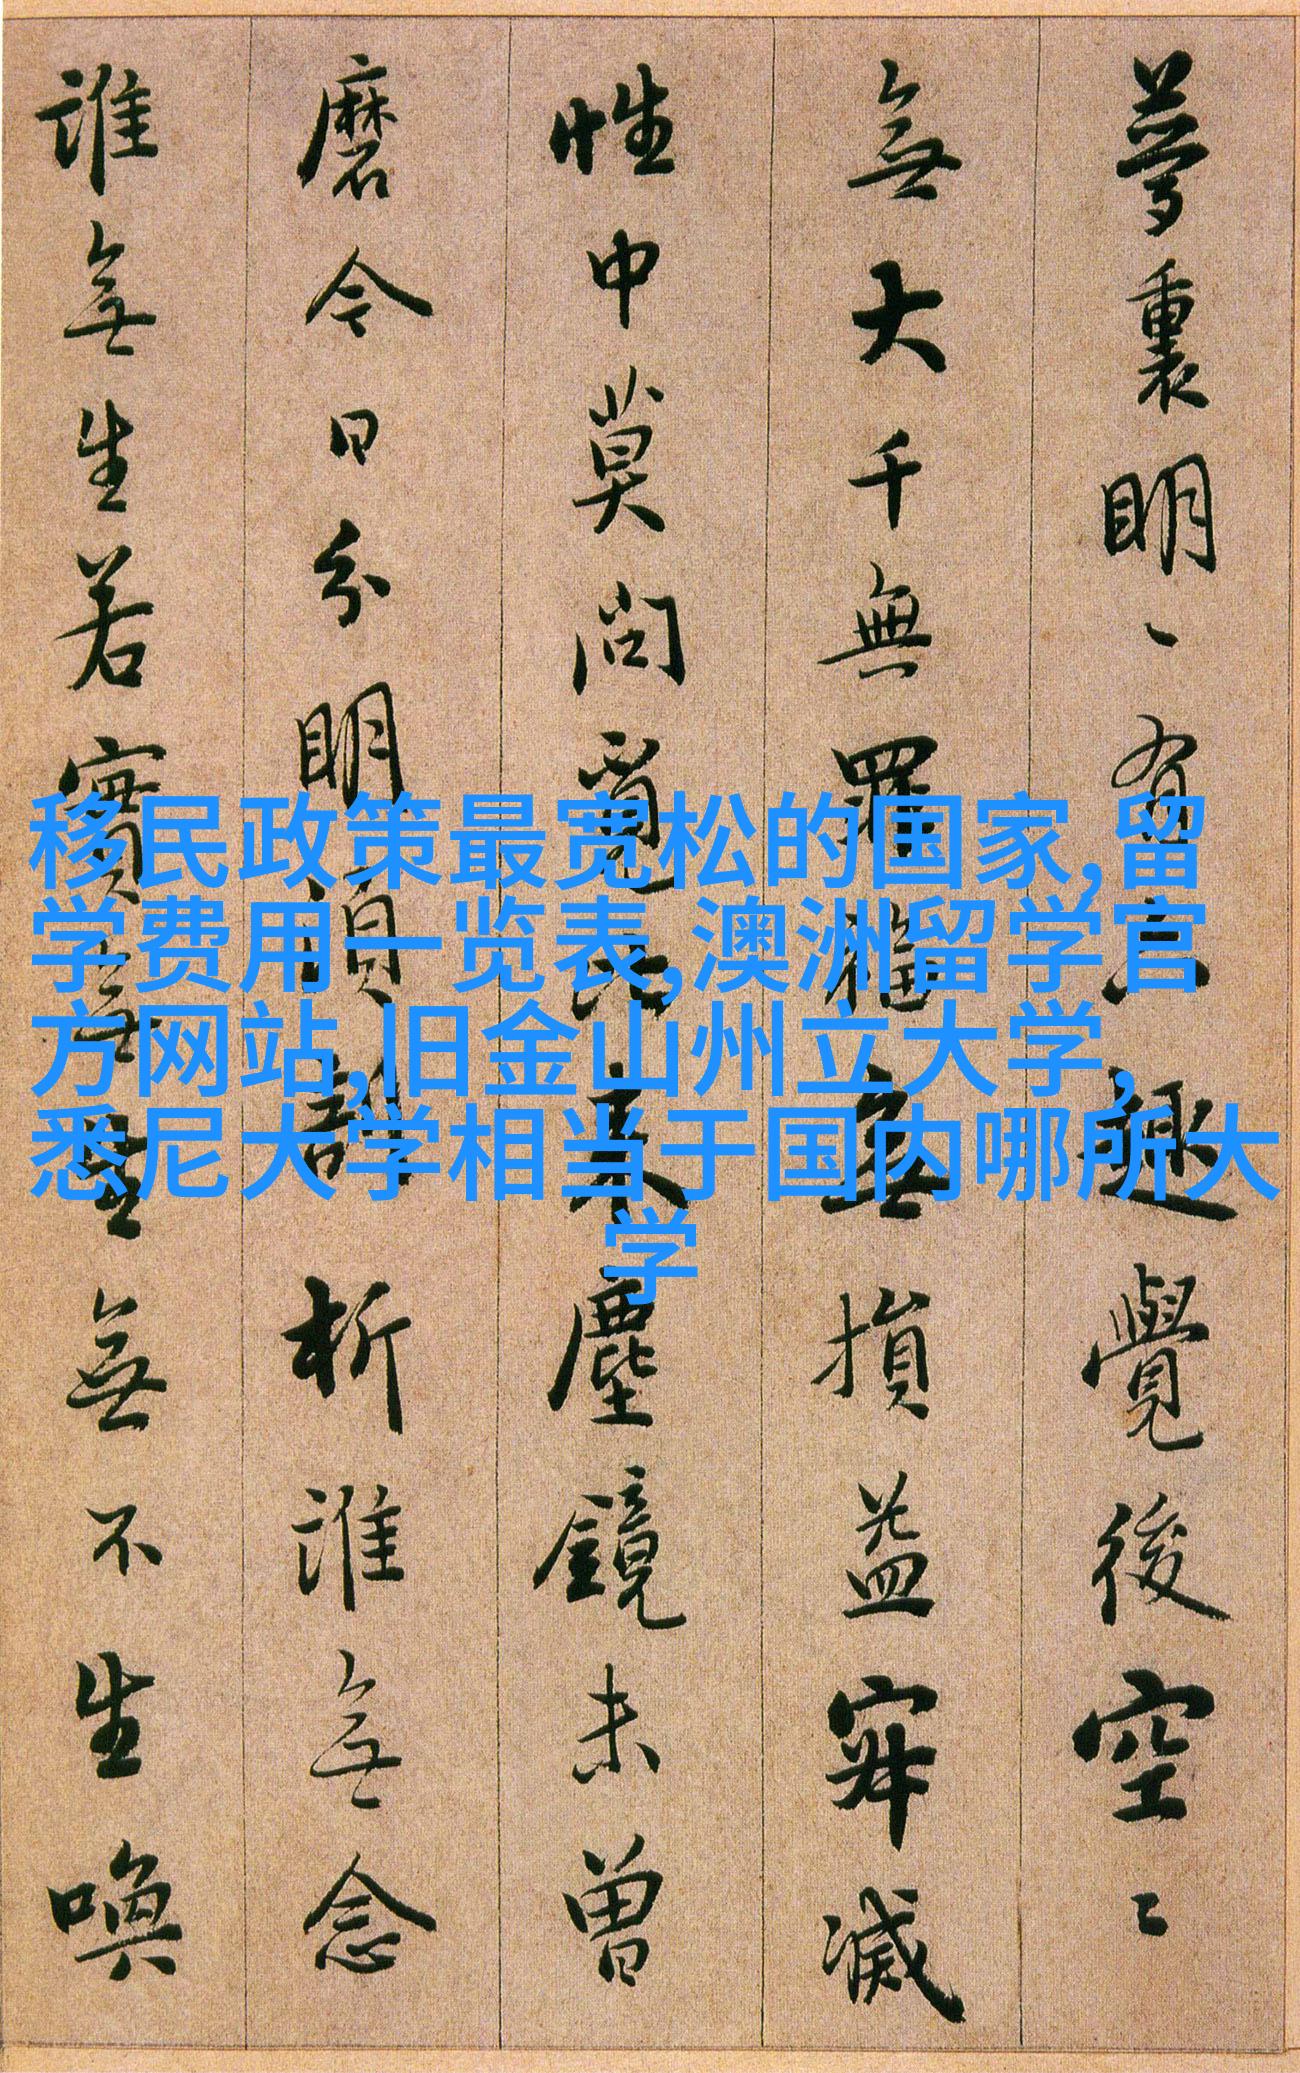 夢裏明〻有六趣覺後空〻
無大千無罪福無損益寂滅
性中莫問覓來塵鏡未曾
磨今日分明須析誰無念
誰無生若實無生無不生喚
移民政策最宽松的国家,留
学费用一览表,澳洲留学官
方网站,旧金山州立大学,
悉尼大学相当于国内哪所大
学